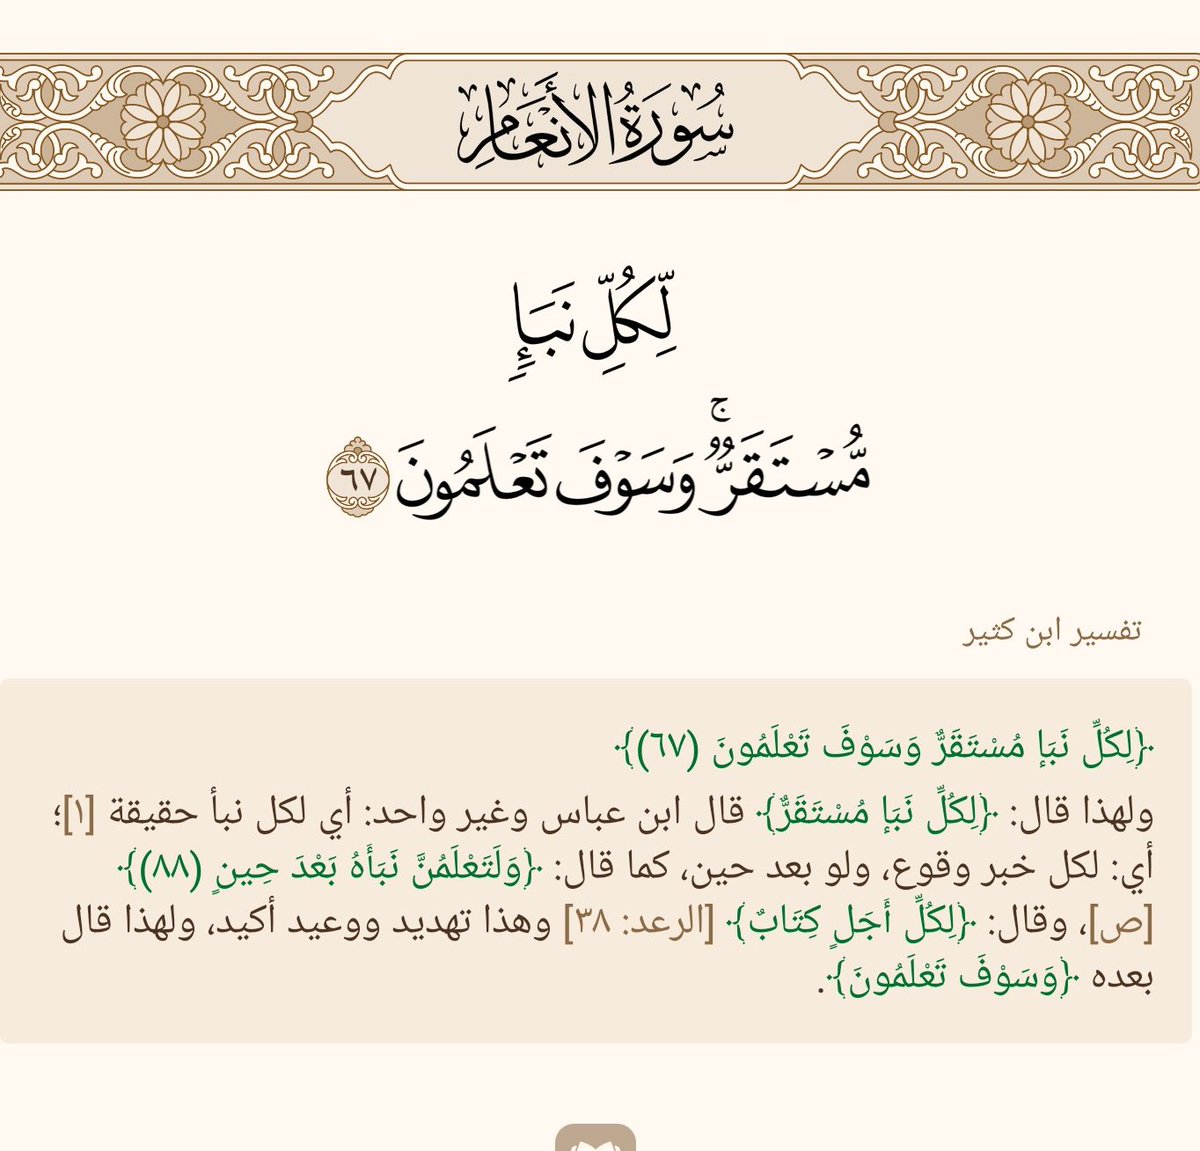 سُورَةُ الأَنْعَامِ
لِّكُلِّ نَبَإٍ
مُّسْتَقَرٌّ ۚ وَسَوْفَ تَعْلَمُونَ ٦٧
تفسير ابن كثير
﴿لِكُلِّ نَبَإٍ مُسْتَقَرٌّ وَسَوْفَ تَعْلَمُونَ (٦٧)﴾
ولهذا قال: ﴿لِكُلِّ نَبَإٍ مُسْتَقَرٌّ﴾ قال ابن عباس وغير واحد: أي لكل نبأ حقيقة [١]؛
أي: لكل خبر وقوع، ولو بعد حين، كما قال: ﴿وَلَتَعْلَمُنَّ نَبَأَهُ بَعْدَ حِينٍ (٨٨)﴾
[ص]، وقال: ﴿لِكُلِّ أَجَلٍ كِتَابٌ﴾ [الرعد: ٣٨] وهذا تهديد ووعيد أكيد، ولهذا قال
بعده ﴿وَسَوْفَ تَعْلَمُونَ﴾.